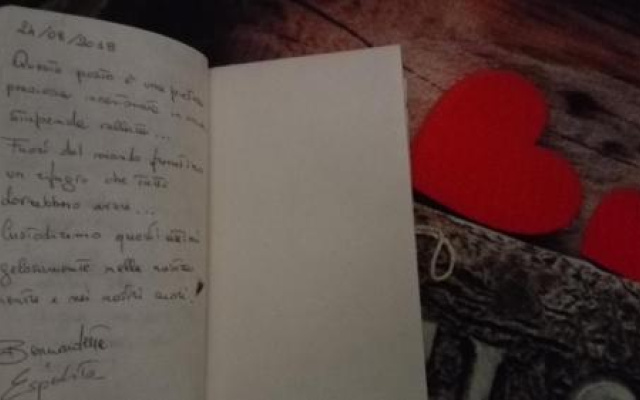 24/08/2018
Questo posto è una pietra
preziosa incastonata in una
stupenda vallata...
Fuori dal mondo frenetico
un rifugio che tutti
dovrebbero avere...
Custodiremo questi attimi
gelosamente nella nostra
mente e nei nostri cuori!
Bernardette
Espedito